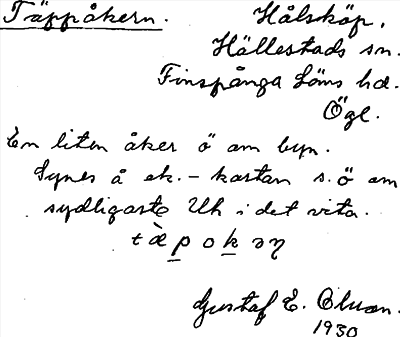 Täppåkern. Hålsköp,
Hällestads sn.
Finspånga läns hd.
Ögl.
En liten åker ö om byn.
Synes å ek. - kartan s. ö om
sydligaste Uh i det vita.
tæ̀p̲ok̲əꞑ
Gustaf E.
1930